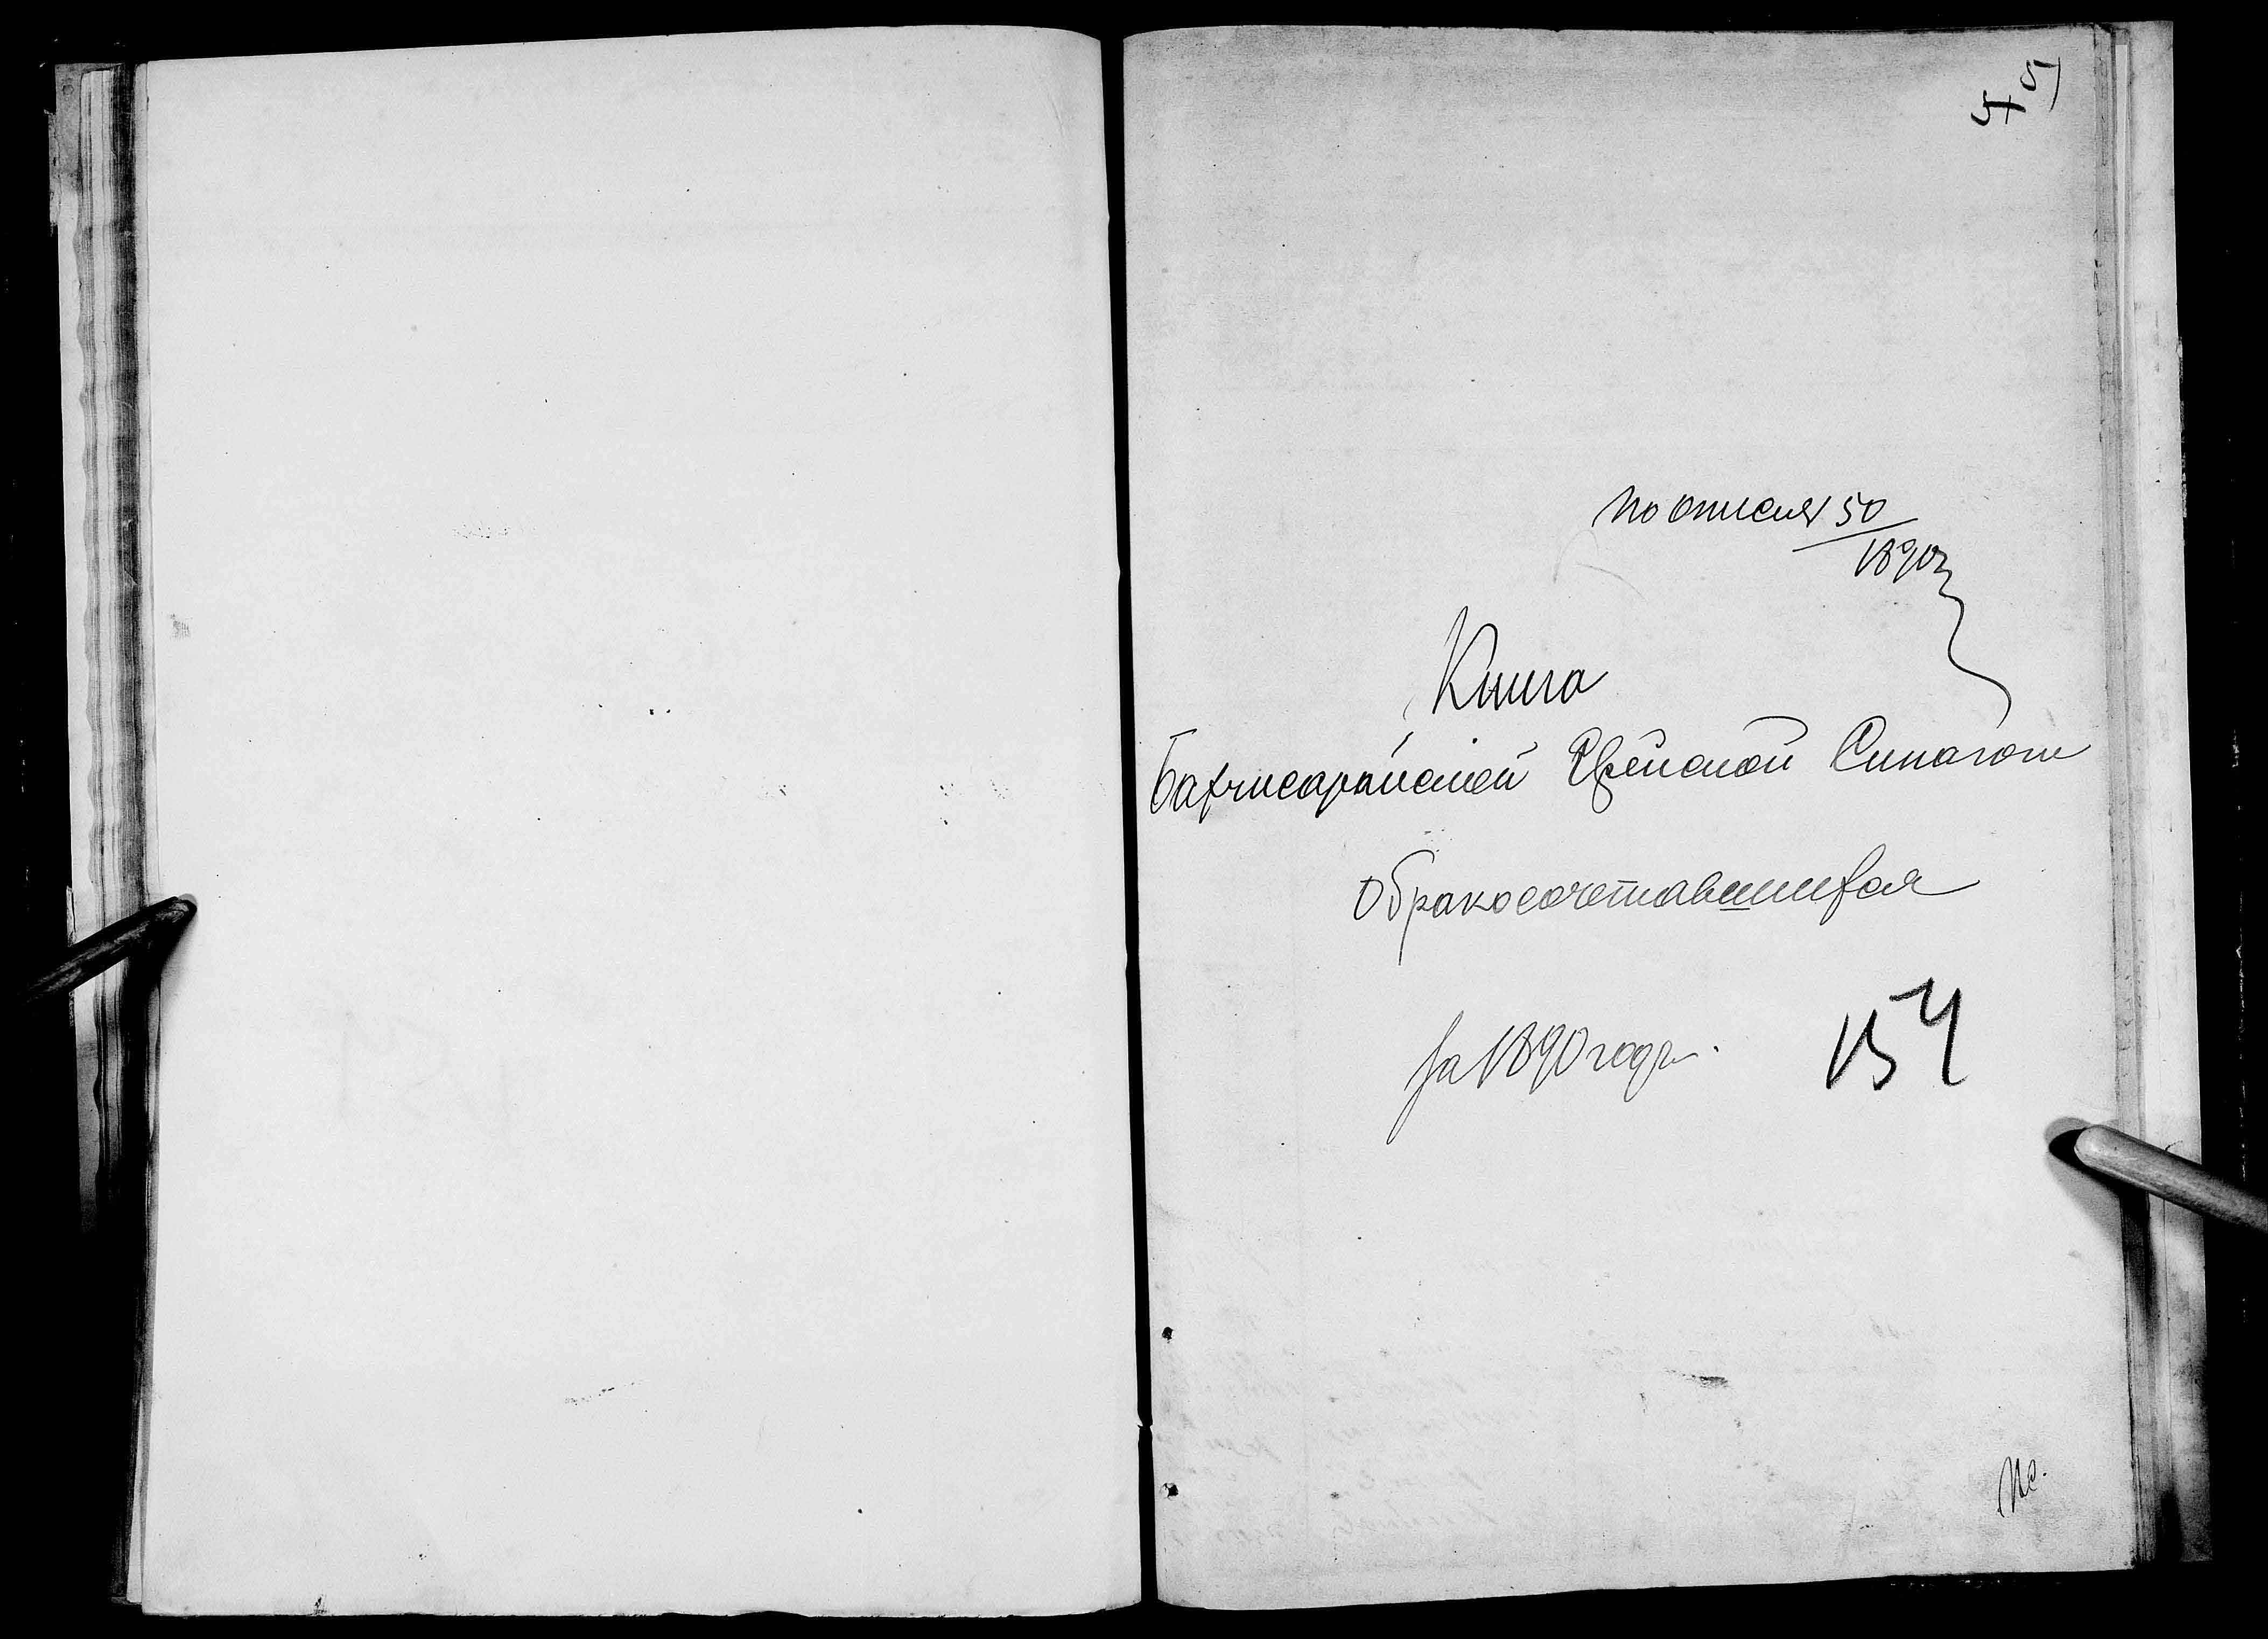 57
По описи 50
1890 г
Книга
Бахчисарайской Еврейской Синагоги
О бракосочетавшихся
за 1890 годъ.
154